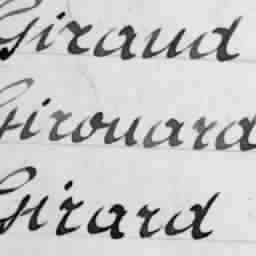 Giraud
Girouard
Girard